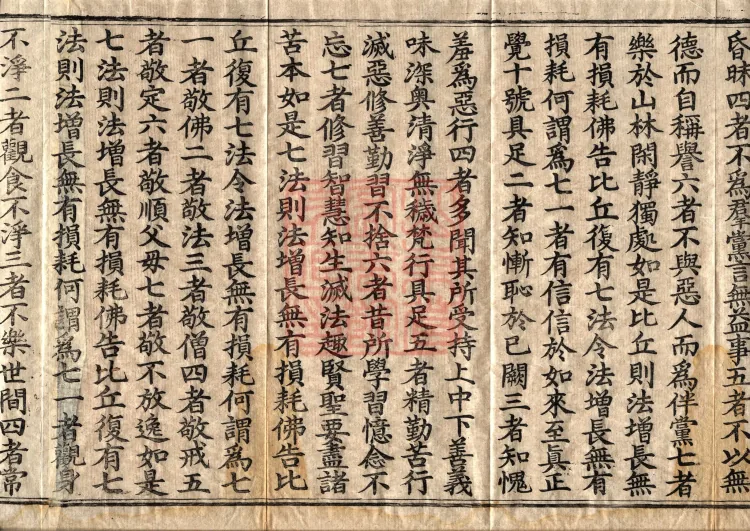 昏昧四者不爲羣黨言無益事五者不以無
德而自稱譽六者不與惡人而爲伴黨七者
樂於山林閑靜獨處如是比丘則法增長無
有損耗佛告比丘復有七法令法增長無有
損耗何謂爲七一者有信信於如來至真正
覺十號具足二者知慚恥於已闕三者知愧
羞爲惡行四者多聞其所受持上中下善義
味深奧清淨無穢梵行具足五者精勤苦行
滅惡修善勤習不捨六者昔所學習憶念不
忘七者修習智慧知生滅法趣賢聖要盡諸
苦本如是七法則法增長無有損耗佛告比
丘復有七法令法增長無有損耗何謂爲七
一者敬佛二者敬法三者敬僧四者敬戒五
者敬定六者敬順父母七者敬不放逸如是
七法則法增長無有損耗佛告比丘復有七
法則法增長無有損耗何謂爲七一者觀身
不淨二者觀食不淨三者不樂世間四者常